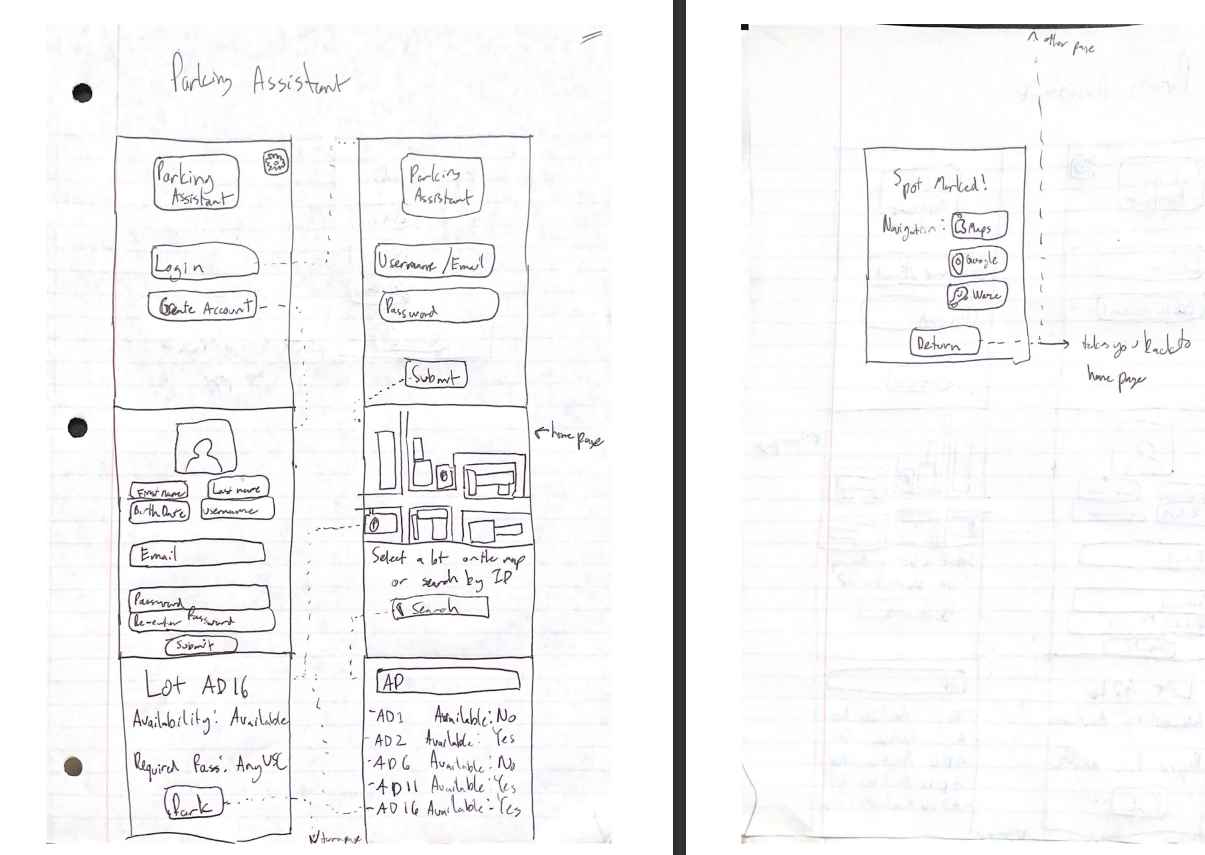 Parking Assistant
Parking
Assistant
Login
Create Account
Parking
Assistant
Username/Email
Password
Submit
First name
Last name
Birth Date
username
Email
Password
Re-enter Password
Submit
← home page
Select a lot on the map
or search by ID
Search
Lot AD16
Availability: Available
Required Pass: Any USC
Park
AP
- AD1 Available: No
- AD2 Available: Yes
- AD6 Available: No
- AD11 Available: Yes
- AD16 Available: Yes
turn page
other page
Spot Marked!
Navigation:
Maps
Google
Waze
Return
takes you back to
home page